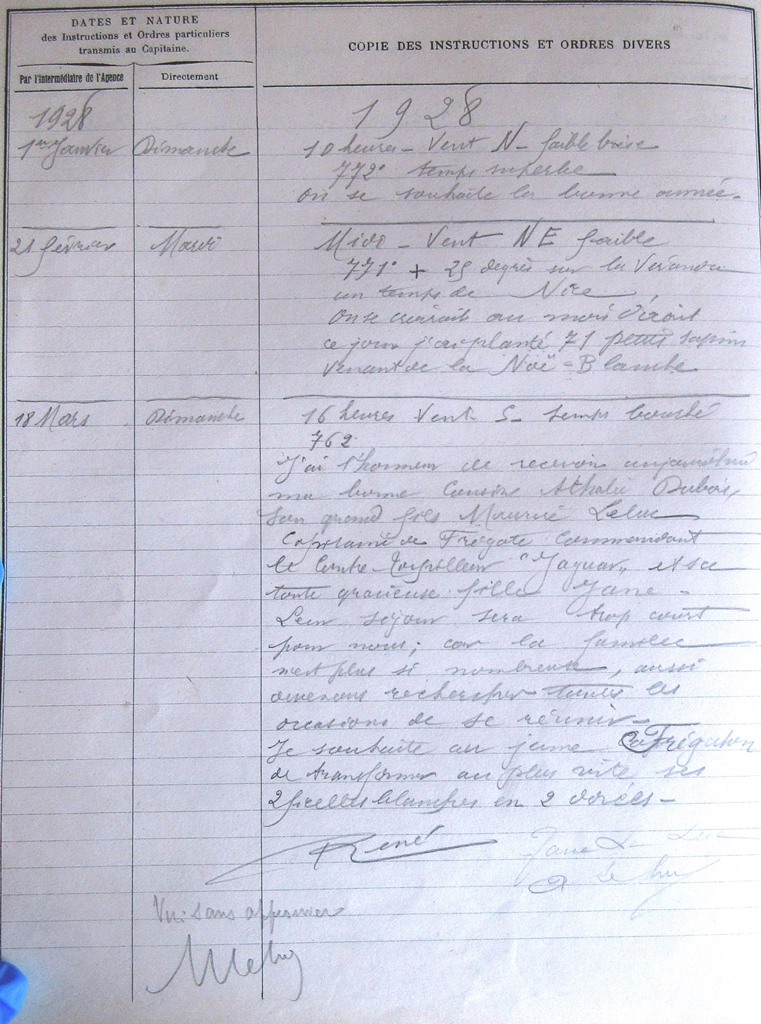 DATES ET NATURE
des Instructions et Ordres particuliers
transmis au Capitaine.
COPIE DES INSTRUCTIONS ET ORDRES DIVERS
Par l'Intermédiaire de l'Agence
Directement
1928
1928
1er Janvier Dimanche 10 heures - Vent N - faible brise
772° temps superbe
on se souhaite la bonne année.
21 février Mardi Midi - Vent NE faible
771° + 25 degrés sur la Veranda
un temps de Nice,
on se croirait au mois d'août
ce jour j'ai planté 71 petits sapins
venant de la Noë-Blanche
18 Mars Dimanche 16 heures Vent S - temps bouché
762
J'ai l'honneur de recevoir aujourd'hui
ma bonne Cousine Athalie Dubois,
son grand fils Maurice
Capitaine de Frégate Commandant
le Contre-Torpilleur "Jaguar" et sa
toute gracieuse fille Jane -
Leur séjour sera trop court
pour nous; car la famille
n'est plus si nombreuse, aussi
devons rechercher toutes les
occasions de se réunir -
Je souhaite au jeune Frégaton
de transformer au plus vite ses
2 ficelles blanches en 2 dorées -
René
Jane
Vu: sans approuver